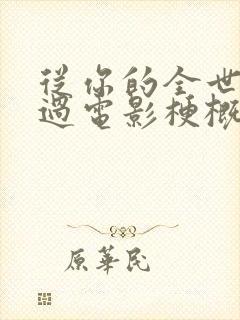 從你的全世
過電影梗概
原華民